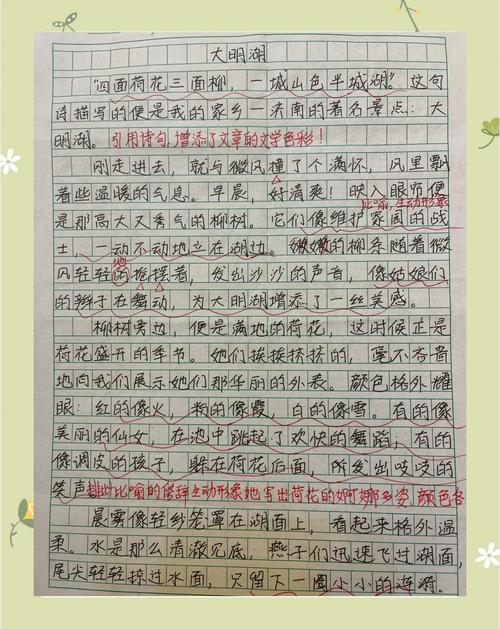 大明湖
“四面荷花三面柳，一城山色半城湖。”这句
诗描写的便是我的家乡一济南的著名景点：大
明湖。引用诗句，增添了文章的文学色彩！
刚走进去，就与微风撞了个满怀，风里飘
着些温暖的气息。早晨，好清爽！映入眼帘便
比喻，生动形象
是那高大又秀气的柳树。它们像维护家园的战
士，一动不动地立在湖边。嫩嫩的柳条随着微
风轻轻的摇摆着，发出沙沙的声音，像姑娘们
地
的辫子在舞动，为大明湖增添了一丝美感。
柳树旁边，便是满地的荷花，这时候正是
荷花盛开的季节。她们挨挨挤挤的，毫不吝啬
地向我们展示她们那华丽的外表。颜色格外耀
眼：红的像火，粉的像霞，白的像雪。有的像
美丽的仙女，在池中跳起了欢快的舞蹈；有的
像调皮的孩子，躲在荷花后面，所发出吱吱的
笑声排比比喻的修辞生动形象地写出荷花的婀娜多姿、颜色各
晨雾像轻纱笼罩在湖面上，看起来格外温
柔。水是那么清澈见底，燕子们迅速飞过湖面，
尾尖轻轻掠过水面，只留下一圈小小的涟漪。